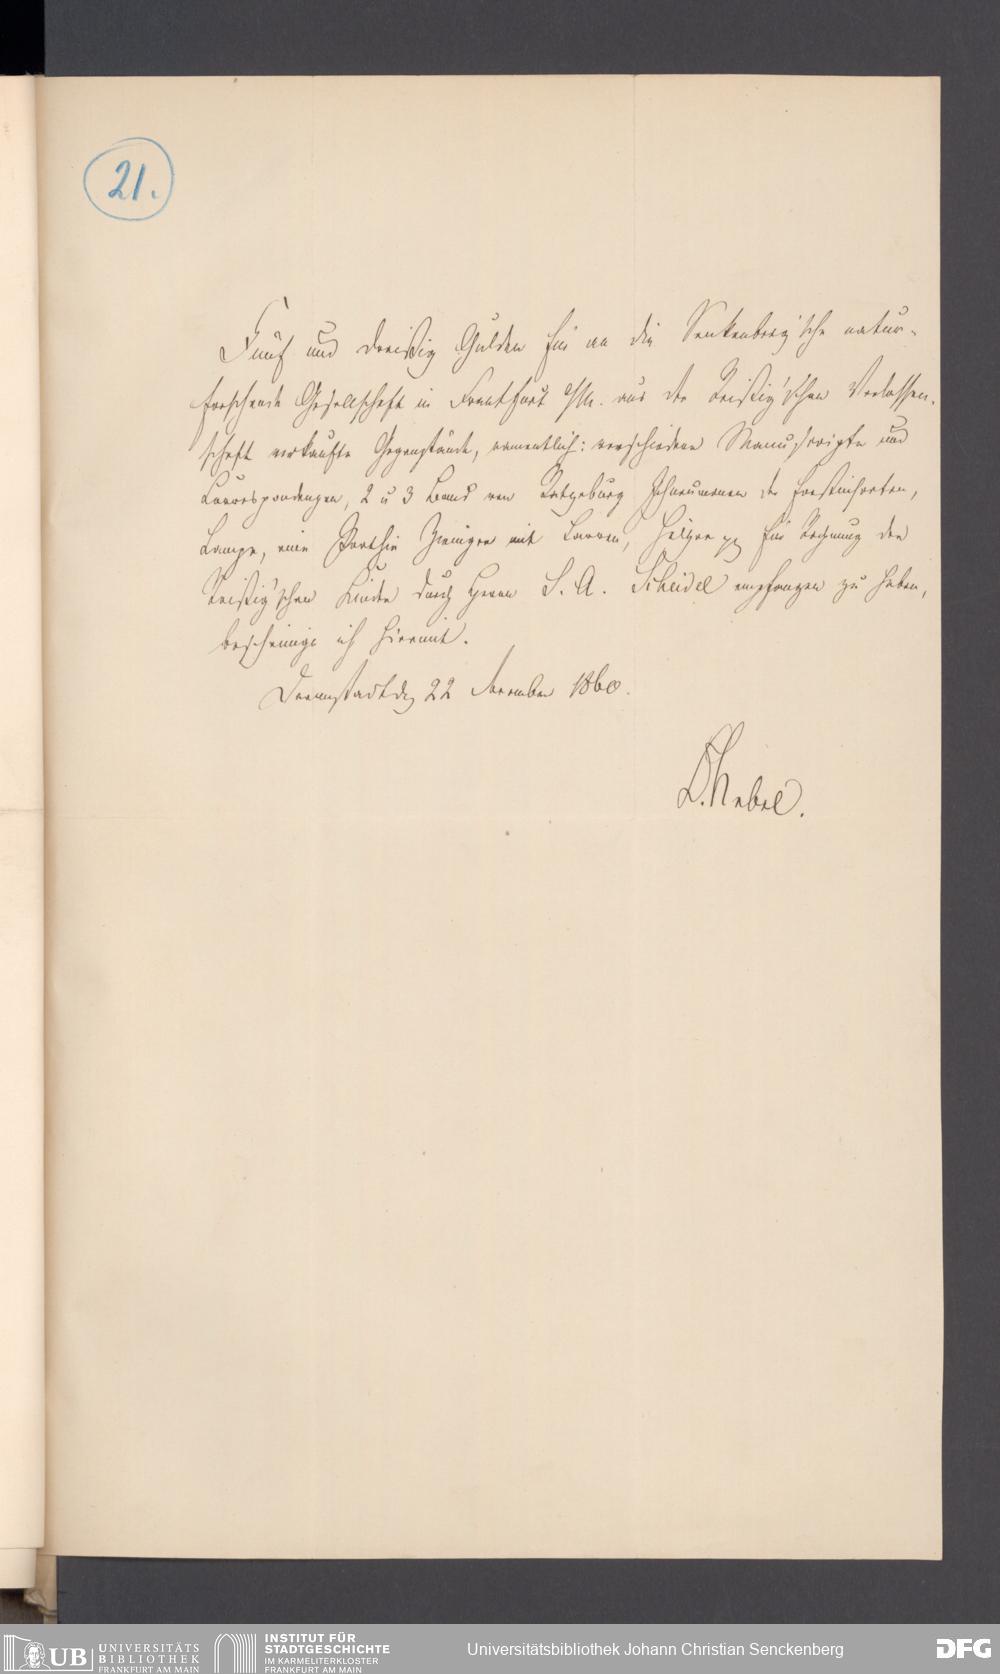 21.
Fünf und dreißig Gulden für an die Senkenberg'sche natur-
forschende Gesellschaft in Frankfurt a/M. aus der Reißig'schen Verlassen-
schaft verkaufte Gegenstände, namentlich: verschiedene Manuscripte und
Correspondenzen, 2 u 3 Band von Ratzeburg Ichneumonen der Forstinsecten,
Lampe, eine Parthie mit Larven, Hülsen für Rechnung der
Reißig'schen Kinder durch Herrn S. A. Scheidel empfangen zu haben,
bescheinige ich hiermit.
Darmstadt den 22 November 1860.
UB UNIVERSITÄTS
BIBLIOTHEK
FRANKFURT AM MAIN
INSTITUT FÜR
STADTGESCHICHTE
IM KARMELITERKLOSTER
FRANKFURT AM MAIN
Universitätsbibliothek Johann Christian Senckenberg
DFG